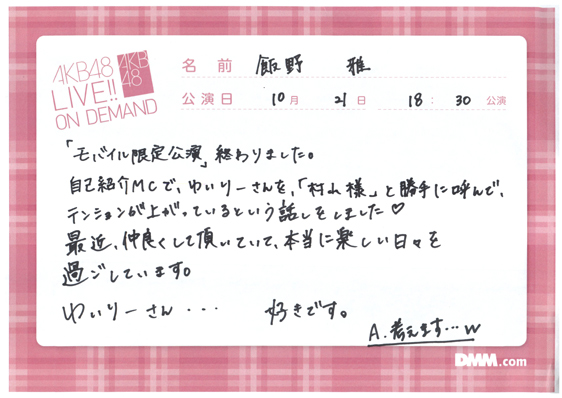 AKB48
LIVE!!
ON DEMAND
AKB
48
名前 飯野 雅
公演日 10月 21日 18:30公演
「モバイル限定公演」終わりました。
自己紹介MCで、ゆいりーさんを、「村山様」と勝手に呼んで、
テンションが上がっているという話しをしました♡
最近、仲良くして頂いていて、本当に楽しい日々を
過ごしています。
ゆいりーさん・・・ 好きです。
A.考えます…w
DMM.com